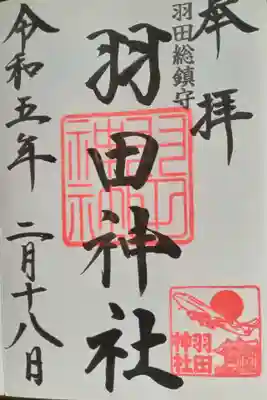 奉拝
羽田総鎮守
羽田神社
令和五年 二月十八日
羽田
神社
羽田
神社